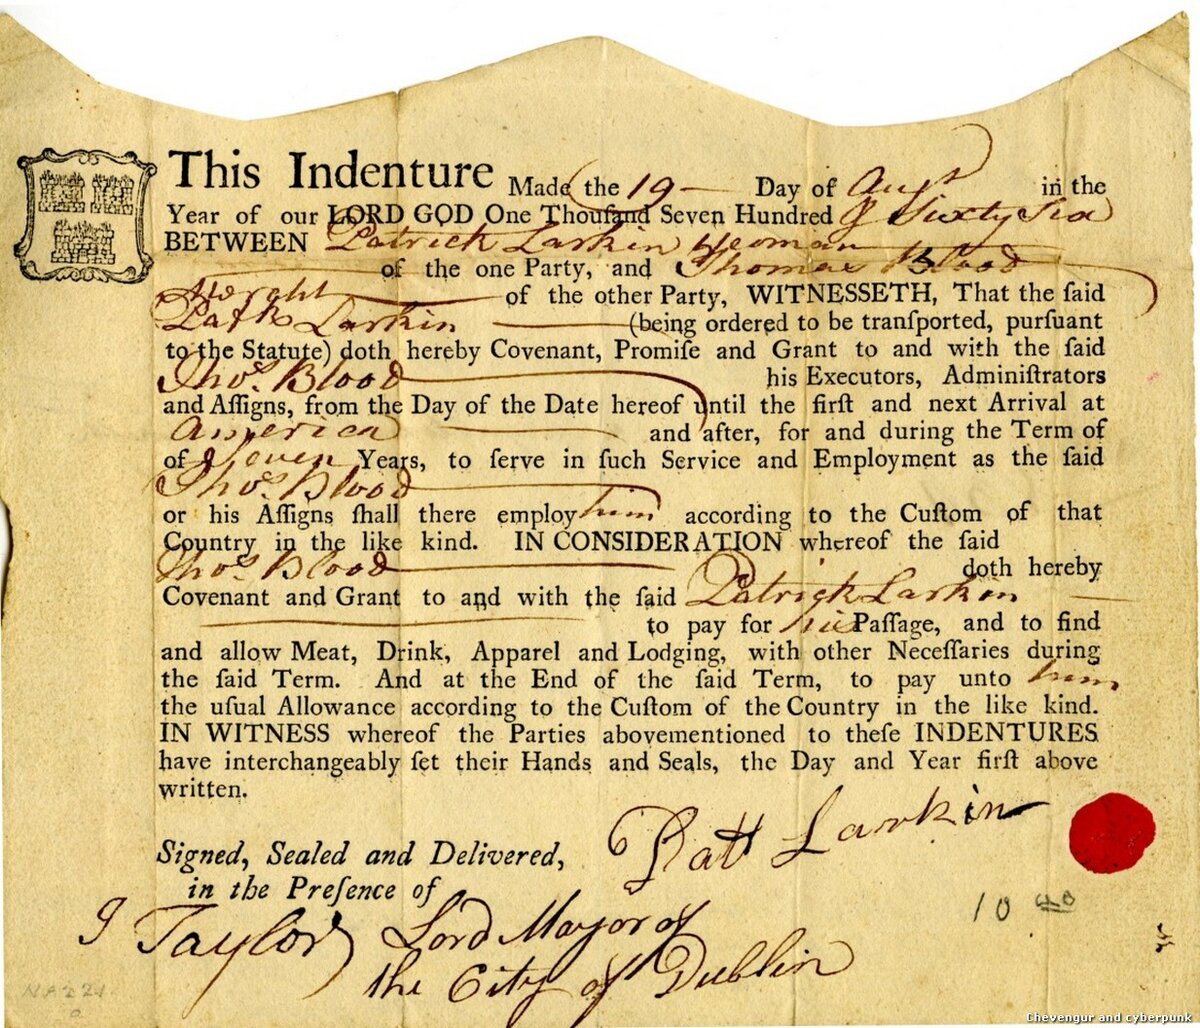 This Indenture Made the 19 Day of Augst in the
Year of our LORD GOD One Thouſand Seven Hundred & Sixty Six
BETWEEN Patrick Larkin Yeoman
of the one Party, and Thomas Blood
of the other Party, WITNESSETH, That the ſaid
Patk Larkin (being ordered to be tranſported, purſuant
to the Statute) doth hereby Covenant, Promiſe and Grant to and with the ſaid
Thos. Blood his Executors, Adminiſtrators
and Aſſigns, from the Day of the Date hereof until the firſt and next Arrival at
America and after, for and during the Term of
of Seven Years, to ſerve in ſuch Service and Employment as the ſaid
Thos. Blood
or his Aſſigns ſhall there employ him according to the Cuſtom of that
Country in the like kind. IN CONSIDERATION whereof the ſaid
Thos. Blood doth hereby
Covenant and Grant to and with the ſaid Patrick Larkin
to pay for his Paſſage, and to find
and allow Meat, Drink, Apparel and Lodging, with other Neceſſaries during
the ſaid Term. And at the End of the ſaid Term, to pay unto him
the uſual Allowance according to the Cuſtom of the Country in the like kind.
IN WITNESS whereof the Parties abovementioned to theſe INDENTURES
have interchangeably ſet their Hands and Seals, the Day and Year firſt above
written.
Patt Larkin
Signed, Sealed and Delivered,
in the Preſence of
J Taylor Lord Mayor of
the City of Dublin
10
Chevengur and cyberpunk